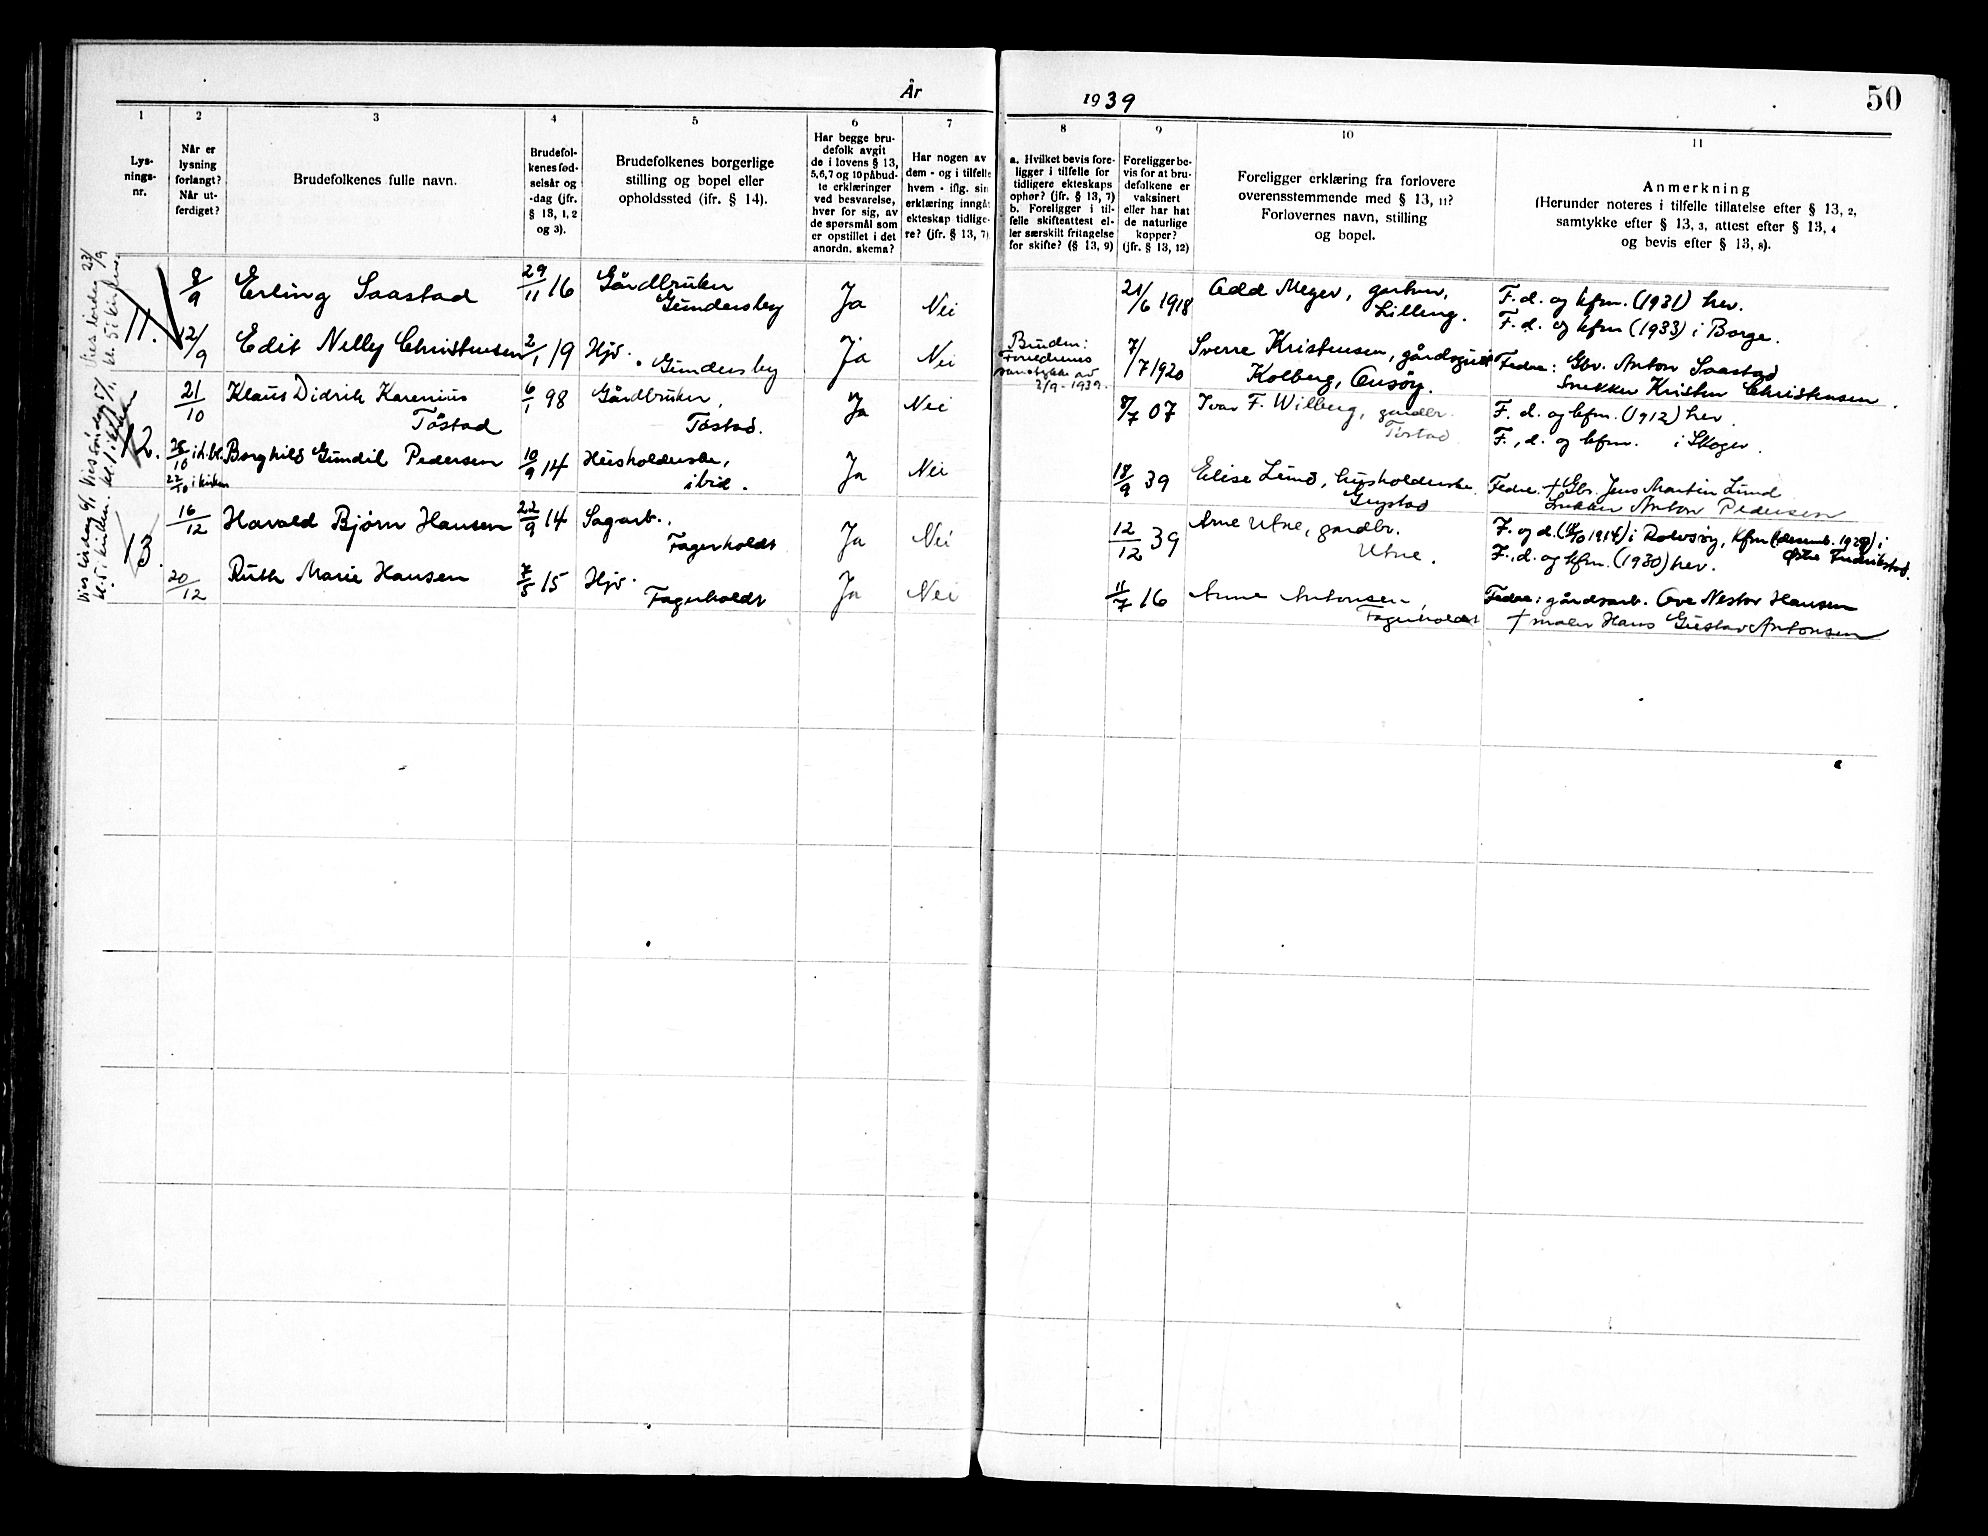 År 1939
50
1
2
3
4
5
6
7
8
9
10
11
Lys-
nings-
nr.
Når er
lysning
forlangt?
Når ut-
ferdiget?
Brudefolkenes fulle navn.
Brudefol-
kenes fød-
selsår og
-dag (jfr.
§ 13, 1, 2
og 3).
Brudefolkenes borgerlige
stilling og bopel eller
opholdssted (ifr. § 14).
Har begge bru-
defolk avgit
de i lovens § 13,
5,6,7 og 10 påbud-
te erklæringer
ved besvarelse,
hver for sig, av
de spørsmål som
er opstillet i det
anordn. skema?
Har nogen av
dem - og i tilfelle
hvem - iflg. sin
erklæring inngåt
ekteskap tidlige-
re? (jfr. § 13, 7)
a. Hvilket bevis fore-
ligger i tilfelle for
tidligere ekteskaps
ophør? (jfr. § 13, 7)
b. Foreligger i til-
felle skifteattest el-
ler særskilt fritagelse
for skifte? (§ 13, 9)
Foreligger be-
vis for at bru-
defolkene er
vaksinert
eller har hat
de naturlige
kopper?
(jfr. § 13, 12)
Foreligger erklæring fra forlovere
overensstemmende med § 13, 11?
Forlovernes navn, stilling
og bopel.
Anmerkning
(Herunder noteres i tilfelle tillatelse efter § 13, 2,
samtykke efter § 13, 3, attest efter § 13, 4
og bevis efter § 13, 8).
Vies lørdag 23/9
kl. 5 i kirken
11.
8/9
Erling Saastad
29/11 16
Gårdbruker
Gundersby
Ja
Nei
21/6 1918
Odd Meyer, gartner,
Lilleng.
F. d. og kfm. (1931) her.
F. d. og kfm (1933) i Borge.
12/9
Edit Nelly Christensen
2/1 19
Hjv.
Gundersby
Ja
Nei
Bruden:
Foreldrenes
samtykke av
2/9-1939.
7/7 1920
Sverre Kristensen, gårdsgutt
Kolberg, Onsøy.
Fedre: Gbr. Anton Saastad
Snekker Kristen Christensen.
Vies søndag 5/11
kl. 1 i kirken
12.
21/10
Klaus Didrik Karenius
Tåstad
6/1 98
Gårdbruker,
Tåstad.
Ja
Nei
8/7 07
Ivar F. Wilberg, gardbr.
Tåstad
F. d. og kfm. (1912) her
F., d. og kfm. i Skoger.
28/10 i h.bl.
22/10 i kirken
Borghild Gundil Pedersen
10/9 14
Husholderske,
ibid.
Ja
Nei
18/9 39
Elise Lund, husholderske
Grystad
Fedre: † Gbr. Jens Martin Lund
Snekker Anton Pedersen
Vies lørdag 6/1
kl. 5 i kirken.
13.
16/12
Harald Bjørn Hansen
22/9 14
Sagarb.
Fagerholdt
Ja
Nei
12/12 39
Arne Utne, gardbr.
Utne.
F. og d. (18/10 1914) i Rolvsøy, kfm (desemb. 1929) i
Østre Fredrikstad.
F., d. og kfm. (1930) her.
20/12
Ruth Marie Hansen
15
Hjv.
Fagerholdt
Ja
Nei
11/7 16
Anne Antonsen,
Fagerholdt
Fedre: gårdsarb. Ove Nestor Hansen
† maler Hans Gustav Antonsen